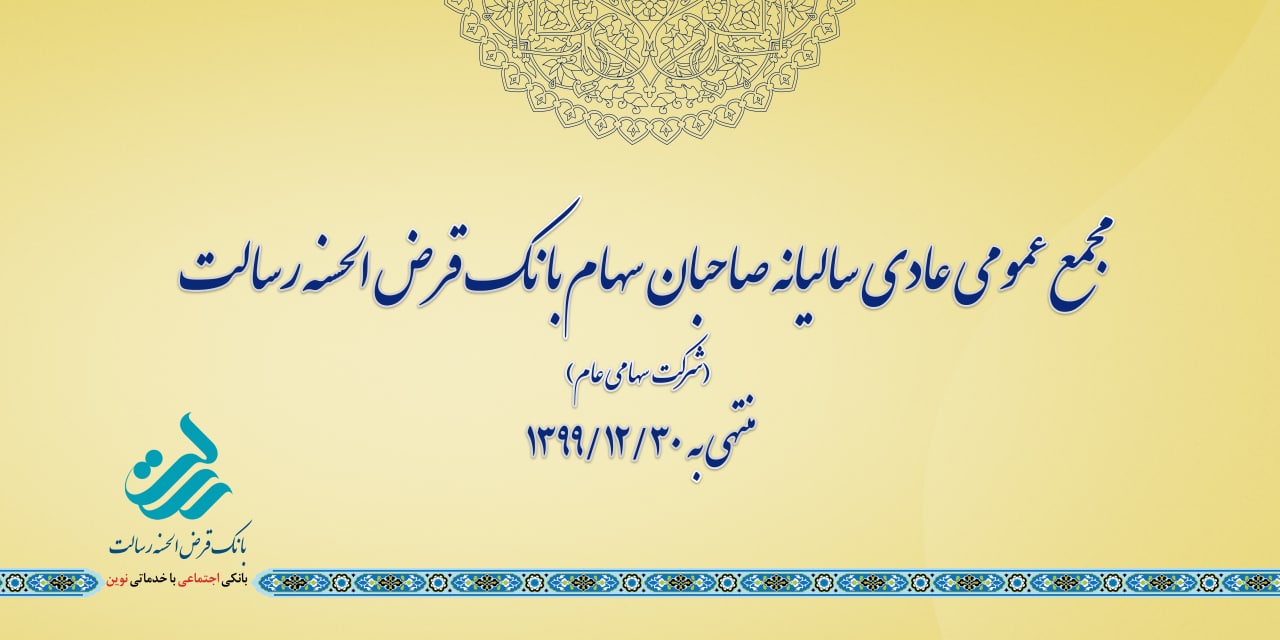 مجمع عمومی عادی سالیانه صاحبان سهام بانک قرض الحسنه رسالت
(شرکت سهامی عام)
منتهی به ۱۳۹۹/۱۲/۳۰
رسالت
بانک قرض الحسنه رسالت
بانکی اجتماعی با خدماتی نوین